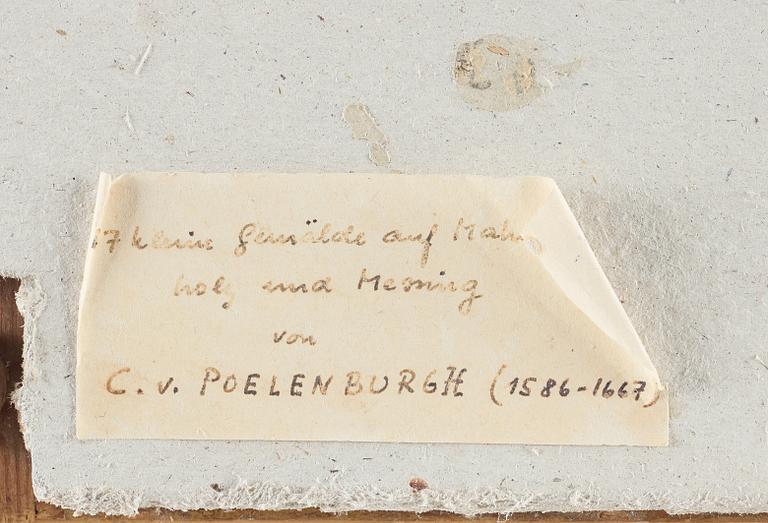 17 kleine Gemälde auf Maha
holz und Messing
von
C. v. POELENBURGH (1586-1667)